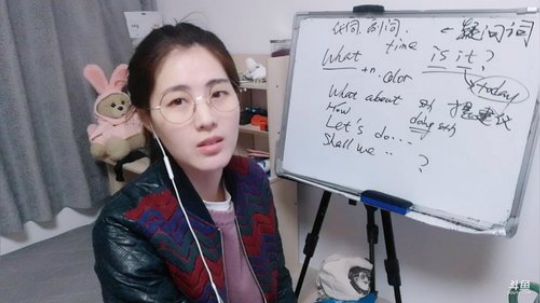 任何 时间 一疑问词
time
What is it?
+n. color today
What about sth 提建议
How doing sth
Let's do...
Shall we .. ?
斗鱼